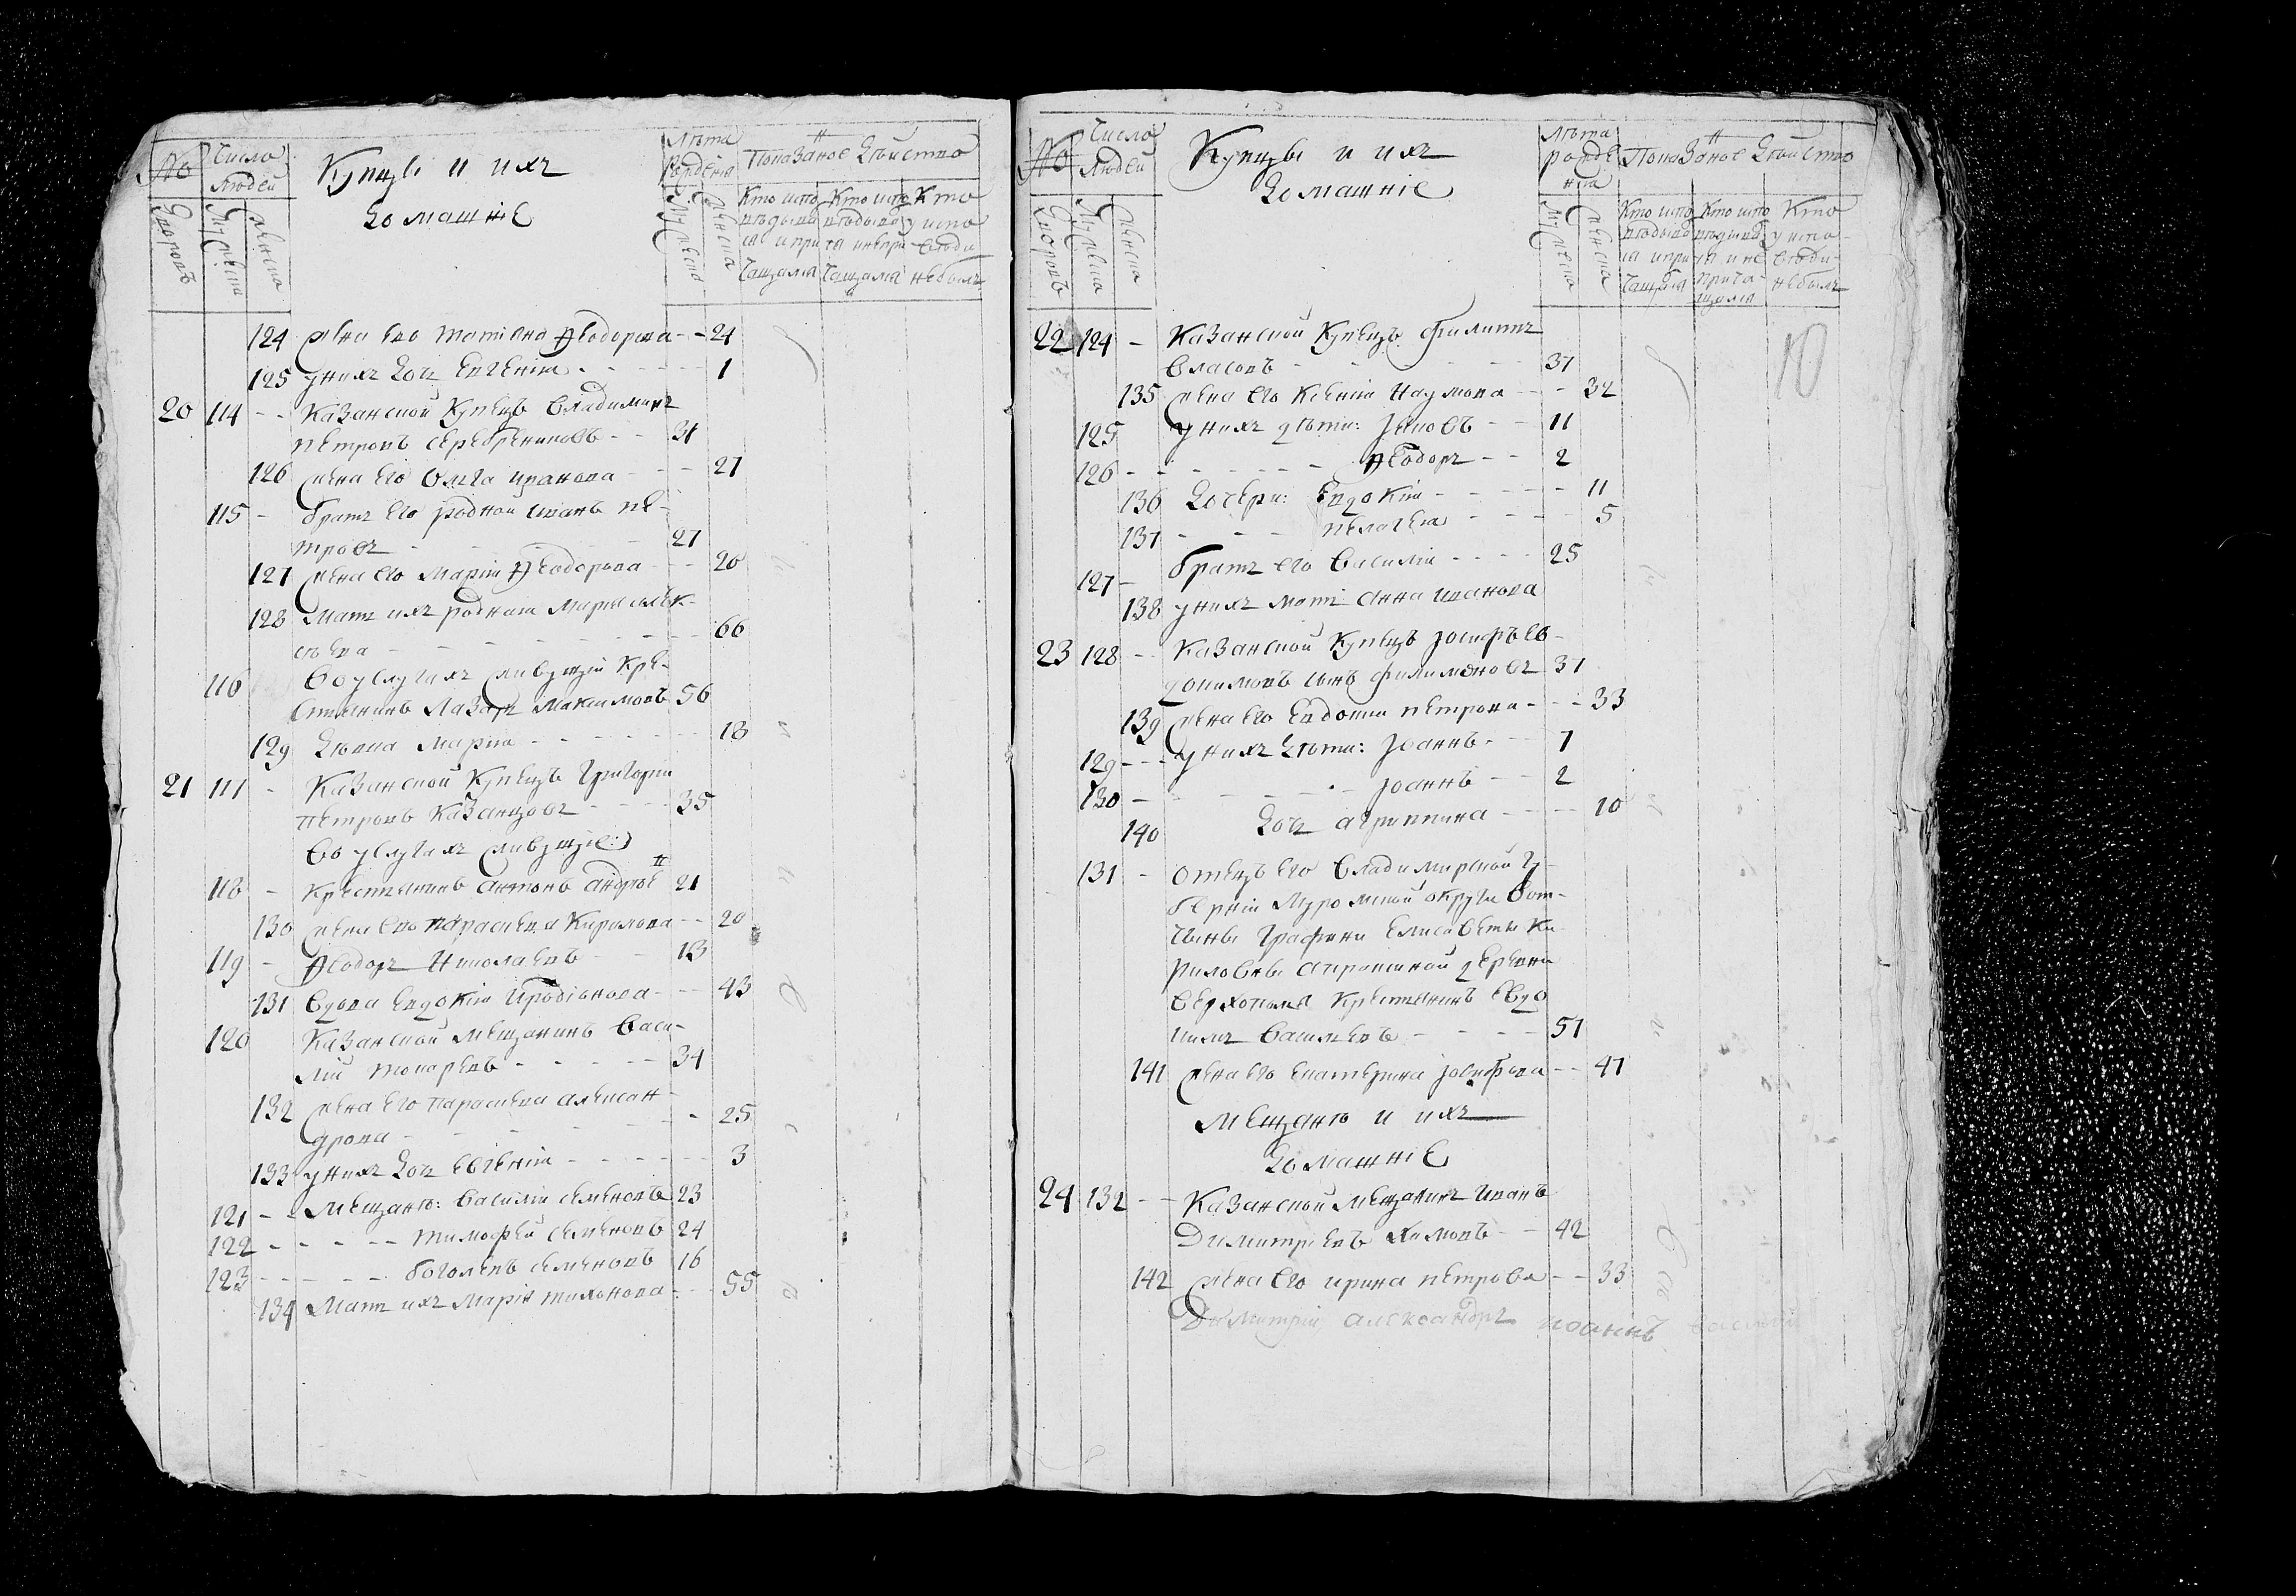 № Число Людей Купцы и ихъ домашніе Лѣта рожденія Показаное дѣйство
Дворовъ Мужеска Женска Мужеска Женска
Кто исповѣдывался и причащался
Кто исповѣдывался и не причащался
Кто у исповѣди не былъ
124 жена ево татіяна Ѳеодорова - - 24
125 у нихъ дочь Евгенія - - - 1
20 114 - - Казанской Купецъ Владимиръ
петровъ серебрениковъ - - 31
126 жена его Олга иванова - - - 27
115 - братъ его родной иванъ пе-
тровъ - - - 27
127 жена его марія Ѳеодорова - - 20
128 мать ихъ родная марья алек-
сѣева - - - 66
116 Во услугахъ живущій кре-
стянинъ Лазарь максимовъ 56
129 дѣвка марія - - - 18
21 117 - Казанской Купецъ Григорій
петровъ Казанцовъ - - - 35
Во услугахъ живущіе
118 - Крестянинъ антонъ андрое 21
130 жена ево параскева Кирилова - - 20
119 - Ѳеодоръ Николаевъ - - 13
131 вдова евдокія иродіонова - - 43
120 Казанской мещанинъ васи-
лій токаревъ - - - 34
132 жена его параскева алексан-
дрова - - - 25
133 у нихъ дочь евгенія - - - 3
121 - - мещаня: василій семеновъ 23
122 - - - - тимофей семеновъ 24
123 - - - - боголепъ семеновъ 16
134 мать ихъ марія тихонова - - 55
№ Число Людей Купцы и ихъ домашніе Лѣта рожденія Показаное дѣйство
Дворовъ Мужеска Женска Мужеска Женска
Кто исповѣдывался и причащался
Кто исповѣдывался и не причащался
Кто у исповѣди не былъ
10
22 124 - Казанской Купецъ филиппъ
власовъ - - - 37
135 жена его Ксенія Наумова - - 32
125 у нихъ дѣти: Іаковъ - - 11
126 - - - Ѳеодоръ - - 2
136 дочери: Евдокія - - - 11
137 - - - пелагея - - - 5
127 - братъ его василій - - - 25
138 у нихъ мать анна иванова
23 128 - - Казанской Купецъ Іосифъ ев-
докимовъ сынъ филимоновъ 31
139 жена его евдокия петрова - - - 33
129 - - - у нихъ дѣти: Іоаннъ - - 7
130 - - - Іоаннъ - - 2
140 дочь агриппина - - - 10
131 - отецъ его владимирской гу-
берніи муромской округи вот-
чины графини елисаветы ки-
риловны апраксиной деревни
крестянинъ евдо
кимъ василиевъ - - - 51
141 жена его екатерина Іосифова - - 47
мещаня и ихъ
домашніе
24 132 - - Казанской мещанинъ иванъ
димитриевъ - - 42
142 жена его ирина петрова - - 33
Димитрій александръ иоаннъ василий